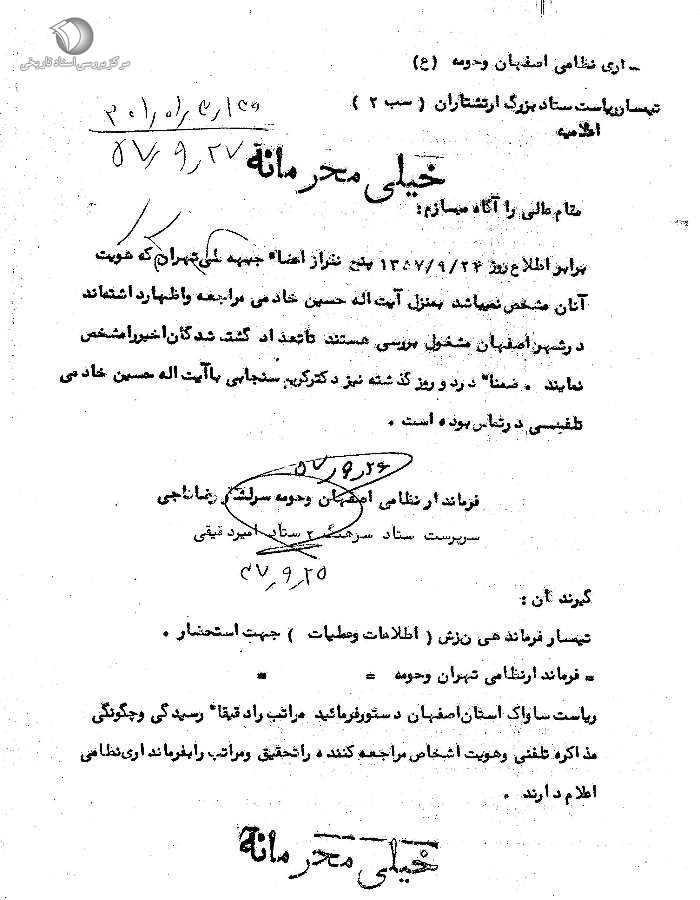 مرکز بررسی اسناد تاریخی
اری نظامی اصفهان وحومه (ع)
تیمسار ریاست ستاد بزرگ ارتشتاران ( سب ۲ )
اعلامیه
۵۷٫۹٫۲۷
خیلی محرمانه
مقام عالی را آگاه میسازم:
برابر اطلاع روز ۱۳۵۷/۹/۲۴ پنج نفر از اعضاء جبهه ملی تهران که هویت
آنان مشخص نمیباشد بمنزل آیت اله حسین خادمی مراجعه واظهارد اشتهاند
درشهر اصفهان مشغول بررسی هستند تاتعداد گشته شدگان اخیررامشخص
نمایند . ضمناً درد و روز گذشته نیز دکترکریم سنجابی باآیت اله حسین خادمی
تلفنی درتماس بوده است .
۵۷٫۹٫۲۶
فرماندار نظامی اصفهان وحومه سرلشگر رضا ناجی
سرپرست ستاد سرهنگ ۲ ستاد امیرد قیقی
۳۷٫۹٫۲۵
گیرندگان :
تیمسار فرماندهی نزش ( اطلاعات وعملیات ) جهت استحضار .
= فرماندارنظامی تهران وحومه = =
ریاست ساواک استان اصفهان دستورفرمائید مراتب رادقیقاً رسیدگی وچگونگی
مذاکره تلفنی وهویت اشخاص مراجعه کننده راتحقیق ومراتب رابفرمانداری نظامی
اعلام دارند .
خیلی محرمانه